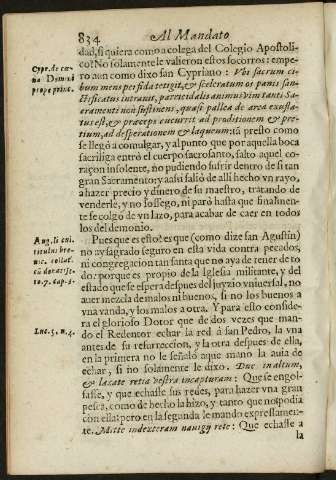 834 Al Mandato
dad, si quiera como a colega del Colegio Apostoli-
co? No solamente le valieron estos socorros: empe-
ro aun como dixo san Cypriano: Vbi sacrum ci-
bum mens perfida tetigit, & sceleratum os panis san-
ctificatus intrauit, parricidalis animus vim tanti Sa-
cramenti non sustinens, quasi pallea de area exufla-
tus est, & præceps cucurrit ad proditionem & pre-
tium, ad desperationem & laqueum: tã presto como
se llegò a comulgar, y al punto que por aquella boca
sacrilega entrò el cuerpo sacrosanto, saltò aquel co-
raçon insolente, no pudiendo sufrir dentro de si tan
gran Sacramento; y assi saliò de alli hecho vn rayo,
a hazer precio y dinero de su maestro, tratando de
venderle, y no sossego, ni parò hasta que finalmen-
te se colgò de vn lazo, para acabar de caer en todos
los del demonio.
Pues que es esto? es que (como dize san Agustin)
no ay sagrado seguro en esta vida contra pecados,
ni congregacion tan santa que no aya de tener de to
do: porque es propio de la Iglesia militante, y del
estado que se espera despues del juyzio vniuersal, no
auer mezcla de malos ni buenos, si no los buenos a
vna vanda, y los malos a otra. Y para esto conside-
ra el glorioso Dotor que de dos vezes que man-
do el Redentor echar la red à san Pedro, la vna
antes de su resurreccion, y la otra despues de ella,
en la primera no le señalò aque mano la auia de
echar, si no solamente le dixo. Duc in altum,
& laxate retia vestra in capturam: Que se engol-
fasse, y que echasse sus redes, para hazer vna gran
pesca, como de hecho la hizo, y tanto que no podia
con ella: pero en la segunda le mando expressamen-
te. Mitte in dexteram nauigij rete: Que echasse a
la
Cypr. de cæ
na Domini
prope princ.
Aug. li
Luc. 5. n. 4.